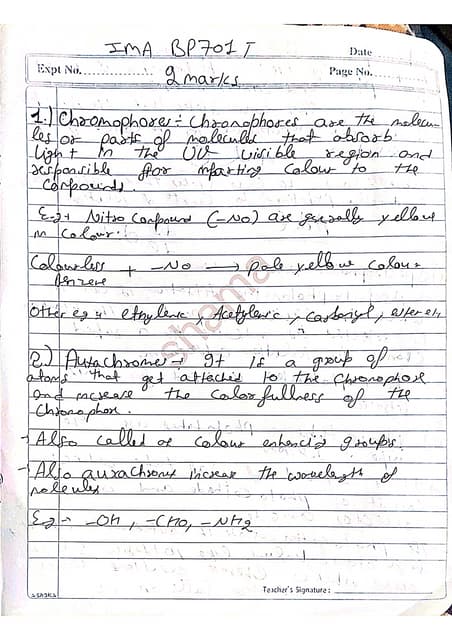 IMA BP701T
Date
Expt No.
2 marks
Page No.
1.) Chromophores :- Chronophores are the molecu-
les or parts of molecules that absorb
light in the UV visible region and
responsible for imparting colour to the
compounds.
E.g → Nitro Compound (-No) are generally yellow
in colour.
Colourless + -No → pale yellow colour
benzene
Other eg :- ethylenic, Acetylenic, carbonyl, ester etc
2.) Auxachromes → It is a group of
atoms that get attached to the chronophore
and increase the colorfullness of the
Chronophore.
→ Also called as colour enhancing groups.
→ Also auxachrome increase the wavelength of
molecules
E.g → -OH, -CHO, -NH2
Teacher's Signature :
shama